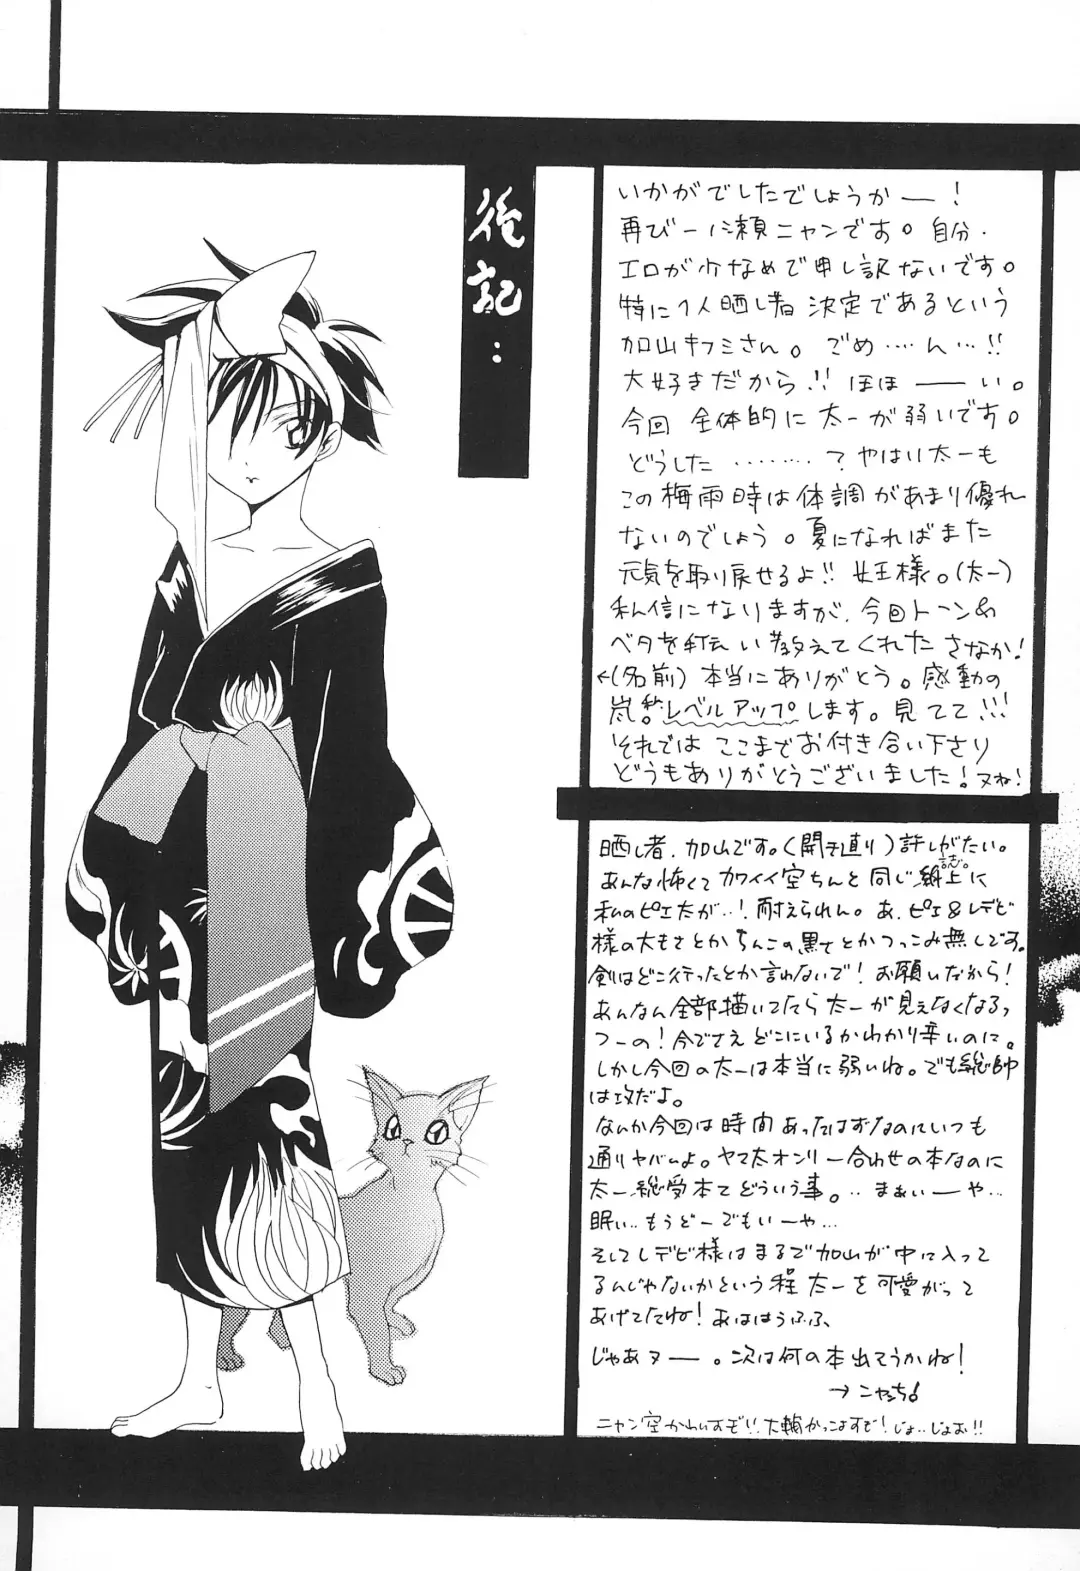 後記:
いかがでしたでしょうかー!
再び一ノ瀬ニャンです。自分、
エロが少なめで申し訳ないです。
特に1人晒し者 決定であるという
加山キフミさん。ごめ…ん…!!
大好きだから!!ほほーい。
今回 全体的に太一が弱いです。
どうした………?やはり太一も
この梅雨時は体調があまり優れ
ないのでしょう。夏になればまた
元気を取り戻せるよ!!女王様。(太一)
私信になりますが、今回トーン&
ベタを手伝い教えてくれた さなか!
←(名前)本当にありがとう。感動の
嵐。レベルアップします。見てて!!!
それでは ここまでお付き合い下さり
どうもありがとうございました!ヌね!
晒し者、加山です。(開き直り)許しがたい。
あんな怖くてカワイイ空ちんと同じ紙上に
誌
私のピエ太が…!耐えられん。あ、ピエ&レデビ
様の大きさとかちんこの黒てとかつっこみ無しです。
剣はどこ行ったとか言わないで!お願いだから!
あんなん全部描いてたら太一が見えなくなるっ
つーの!今でさえどこにいるかわかり辛いのに。
しかし今回の太一は本当に弱いね。でも総帥
は攻だよ。
なんか今回は時間あったはずなのにいつも
通りヤバムよ。ヤマ太オンリー合わせの本なのに
太一総受本てどういう事。‥まぁいーや…
眠い…もうどーでもいーや…
そしてレデビ様はまるで加山が中に入って
るんじゃないかという程 太一を可愛がって
あげてたね!あははうふふ、
じゃあヌー。次は何の本出てうかね!
→ニャンち!
ニャン空かわいすぞ!!大輔かっこよすぎ!じょ…じょお!!